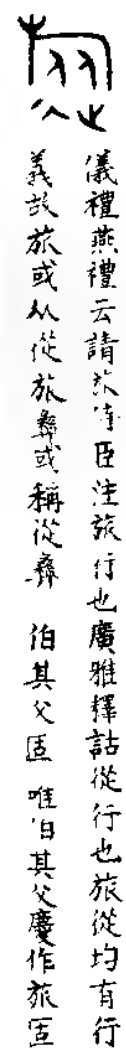 儀禮燕禮云請旅侍臣注旅行也廣雅釋詁從行也旅從均有行
義故旅或从從旅彝或稱從彝 伯其父𠤳 唯伯其父慶作旅𠤳